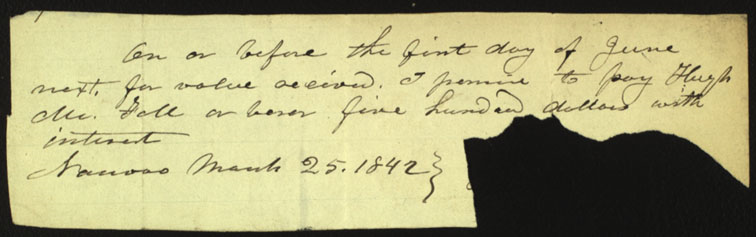 On or before the first day of June
next, for value receivd. I promise to pay Hugh
Mc. Fall or barer five hundred dollars with
interest
Nauvoo March 25. 1842